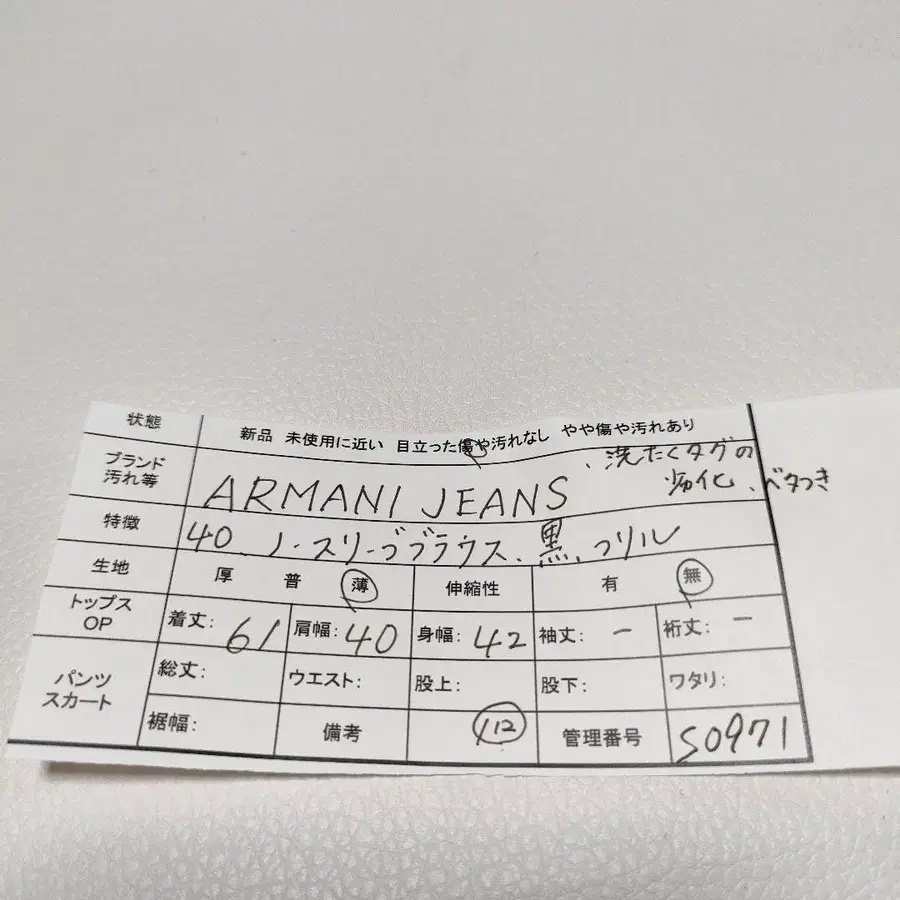 状態 新品 未使用に近い 目立った傷や汚れなし やや傷や汚れあり
ブランド 汚れ等 ARMANI JEANS 、洗たくタグの
劣化、ベタつき
特徴 40、ノースリーブブラウス、黒、フリル
生地 厚 普 薄 伸縮性 有 無
トップス OP 着丈: 61 肩幅: 40 身幅: 42 袖丈: ー 裄丈: ー
パンツ スカート 総丈: ウエスト: 股上: 股下: ワタリ:
裾幅: 備考 112 管理番号 S0971